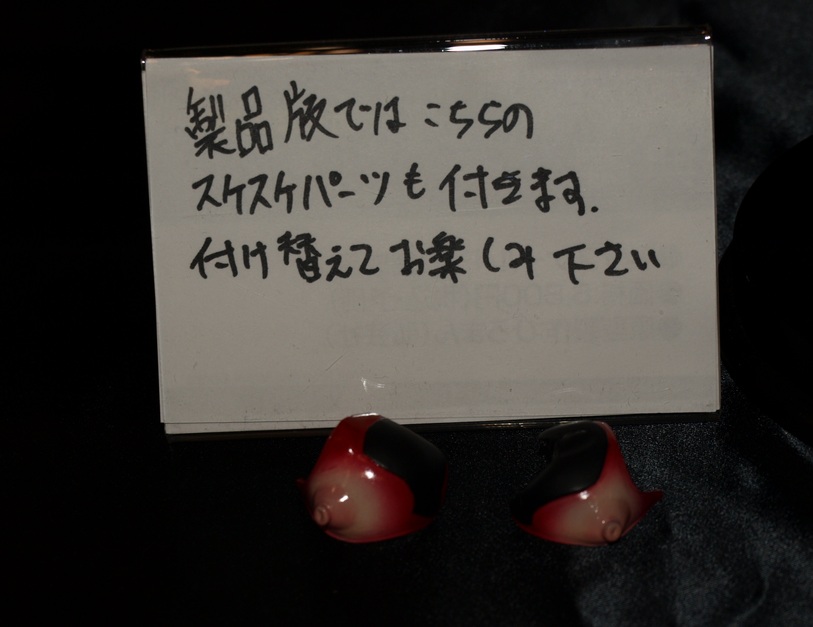 製品版ではこちらの
スケスケパーツも付きます.
付け替えてお楽しみ下さい